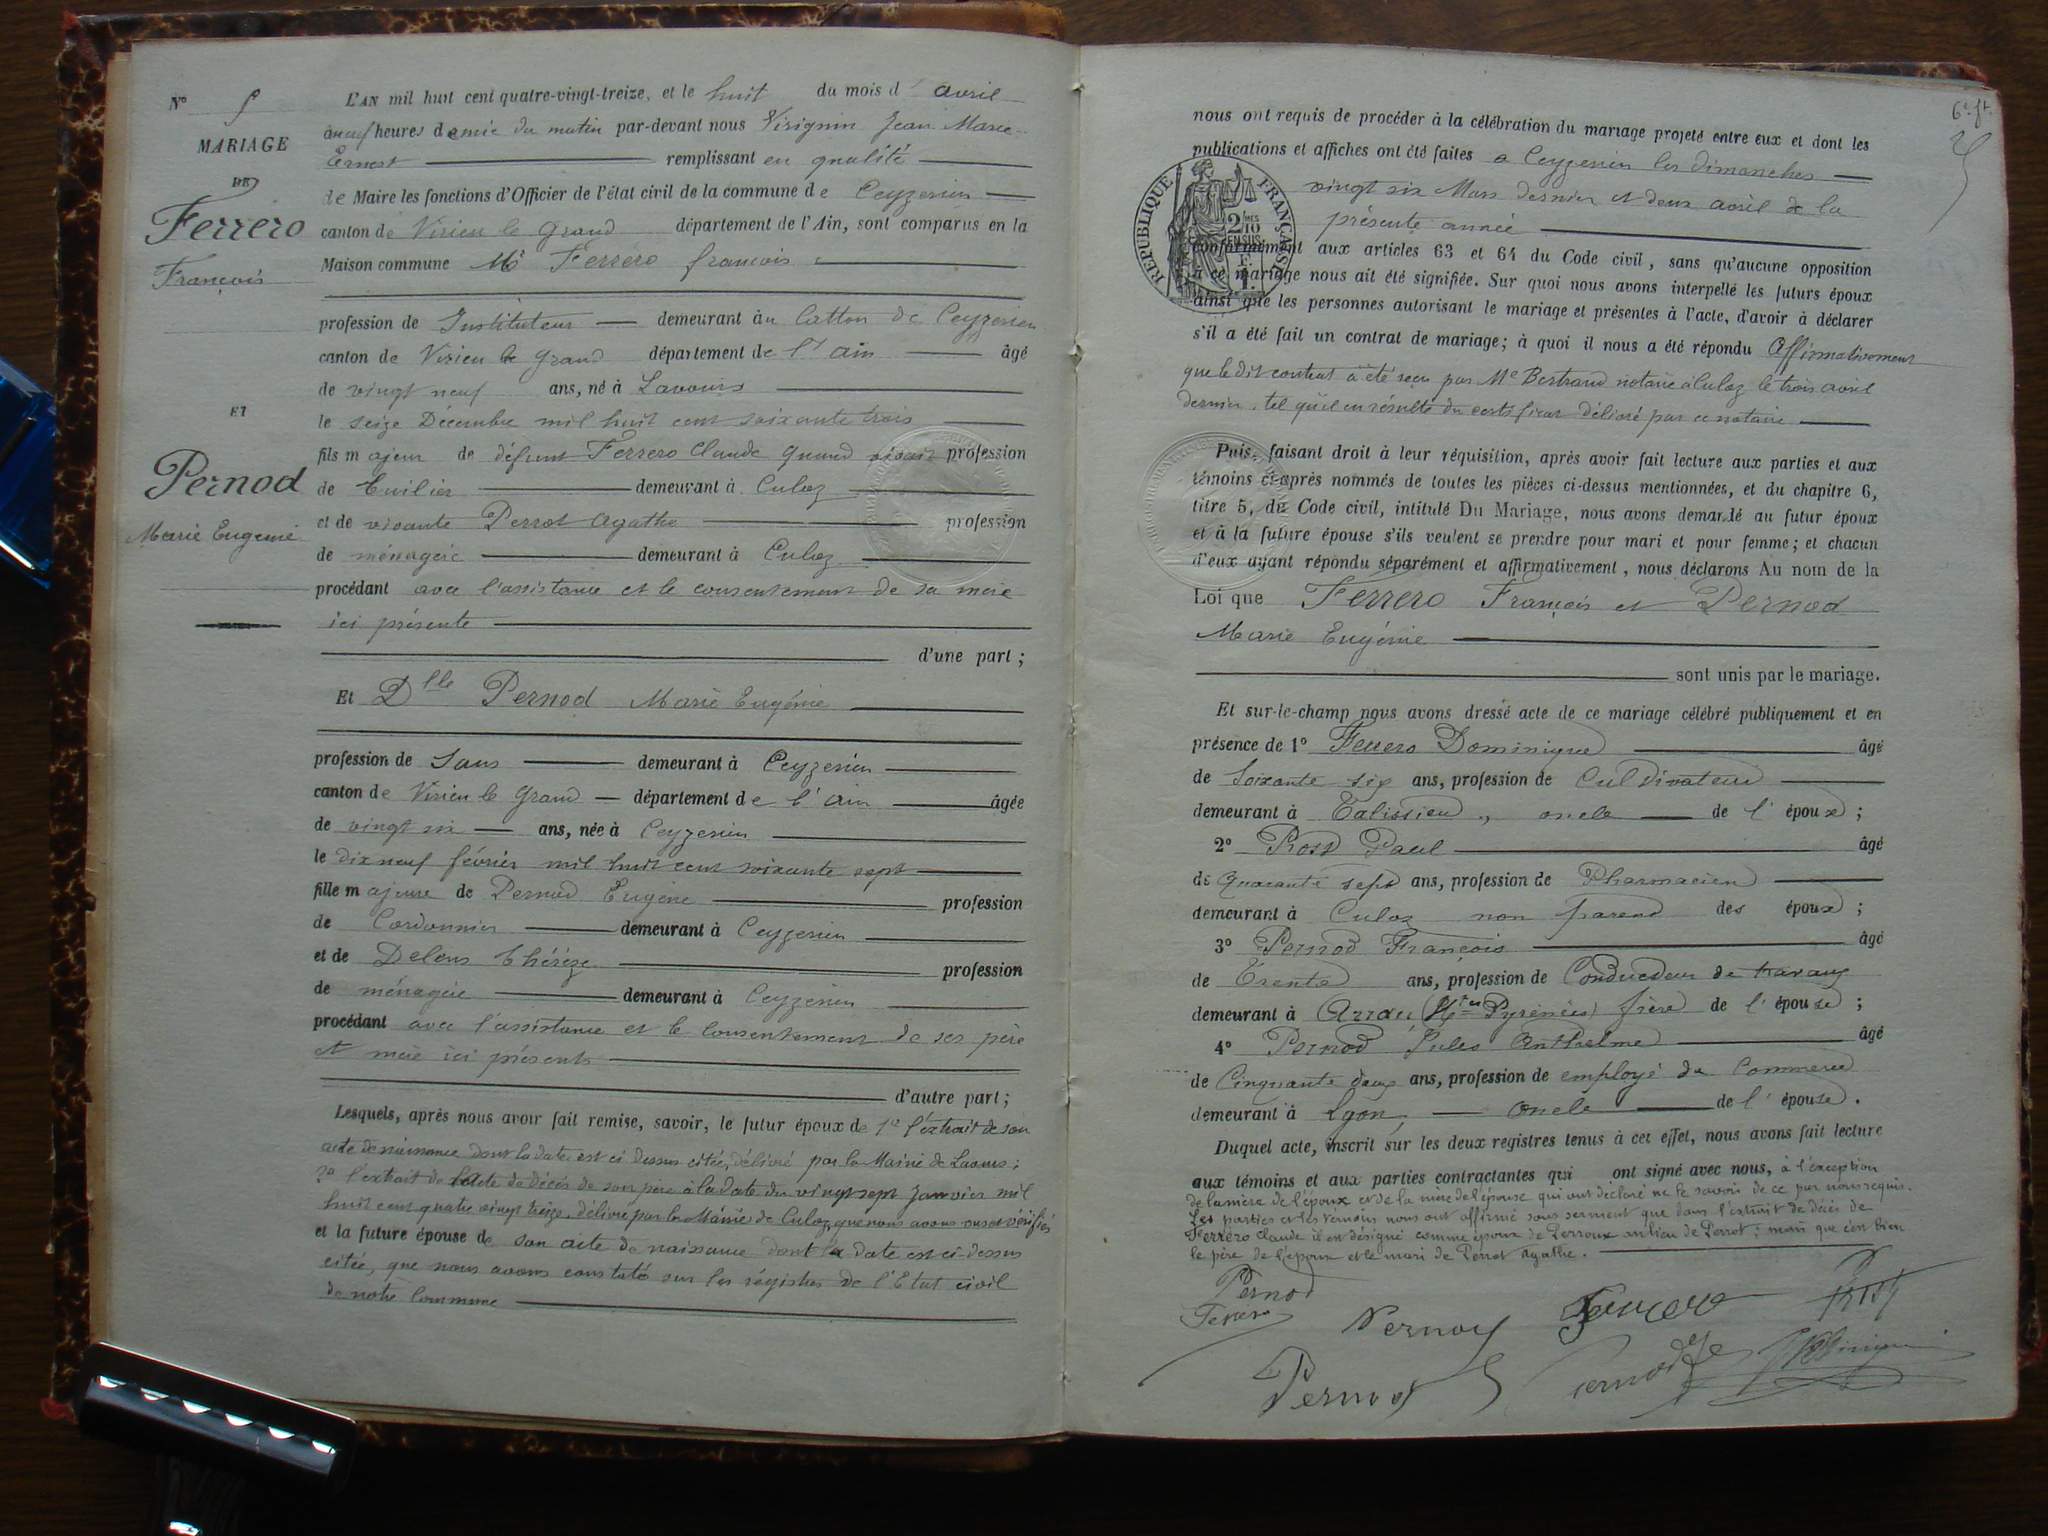 N° 5
MARIAGE
DE
Ferrero
François
ET
Pernod
Marie Eugénie
L'AN mil huit cent quatre-vingt-treize, et le huit du mois d'avril
à neuf heures demie du matin par-devant nous Virignin Jean Marie
Ernest remplissant en qualité
de Maire les fonctions d'Officier de l'état civil de la commune de Ceyzerieu
canton de Virieu le Grand département de l'Ain, sont comparus en la
Maison commune Mr Ferrero françois
profession de Instituteur demeurant au Catton de Ceyzerieu
canton de Virieu le Grand département de l'ain âgé
de vingt neuf ans, né à Lavours
le seize Décembre mil huit cent soixante trois
fils majeur de défunt Ferrero Claude quand vivait profession
de Tuilier demeurant à Culoz
et de vivante Perrot Agathe profession
de ménagère demeurant à Culoz
procédant avec l'assistance et le consentement de sa mère
ici présente
d'une part ;
Et Dlle Pernod Marie Eugénie
profession de Sans demeurant à Ceyzerieu
canton de Virieu le Grand département de l'ain âgée
de vingt six ans, née à Ceyzerieu
le dix neuf février mil huit cent soixante sept
fille majeure de Pernod Eugène profession
de Cordonnier demeurant à Ceyzerieu
et de Thérèze profession
de ménagère demeurant à Ceyzerieu
procédant avec l'assistance et le consentement de ses père
et mère ici présents
d'autre part ;
Lesquels, après nous avoir fait remise, savoir, le futur époux de 1° l'extrait de son
acte de naissance dont la date est ci dessus citée, délivré par la Mairie de Lavours ;
2° l'extrait de l'acte de décès de son père à la date du vingt sept Janvier mil
huit cent quatre vingt treize, délivré par la Mairie de Culoz, que nous avons vus et vérifiés
et la future épouse de son acte de naissance dont la date est ci-dessus
citée, que nous avons constaté sur les régistres de l'Etat civil
de notre Commune
6e ft.
nous ont requis de procéder à la célébration du mariage projeté entre eux et dont les
publications et affiches ont été faites à Ceyzerieu les dimanches
vingt six Mars dernier et deux avril de la
présente année
RÉPUBLIQUE FRANÇAISE
2/10 MES
EN SUS
conformément aux articles 63 et 64 du Code civil, sans qu'aucune opposition
à ce mariage nous ait été signifiée. Sur quoi nous avons interpellé les futurs époux
ainsi que les personnes autorisant le mariage et présentes à l'acte, d'avoir à déclarer
s'il a été fait un contrat de mariage ; à quoi il nous a été répondu Affirmativement
que le dit contrat a été reçu par Me Bertrand notaire à Culoz le trois avril
dernier, tel qu'il en résulte du certificat délivré par ce notaire
Puis, faisant droit à leur réquisition, après avoir fait lecture aux parties et aux
témoins ci-après nommés de toutes les pièces ci-dessus mentionnées, et du chapitre 6,
titre 5, du Code civil, intitulé Du Mariage, nous avons demandé au futur époux
et à la future épouse s'ils veulent se prendre pour mari et pour femme ; et chacun
d'eux ayant répondu séparément et affirmativement, nous déclarons Au nom de la
Loi que Ferrero François et Pernod
Marie Eugénie
sont unis par le mariage.
Et sur-le-champ nous avons dressé acte de ce mariage célébré publiquement et en
présence de 1° Ferrero Dominique âgé
de Soixante six ans, profession de Cultivateur
demeurant à Talissieu, oncle de l'époux ;
2° Prost Paul âgé
de quarante sept ans, profession de Pharmacien
demeurant à Culoz non parent des époux ;
3° Pernod François âgé
de Trente ans, profession de Conducteur de travaux
demeurant à Arrau (Htes Pyrénées) frère de l'épouse ;
4° Pernod Jules Anthelme âgé
de Cinquante deux ans, profession de employé de Commerce
demeurant à Lyon, oncle de l'épouse.
Duquel acte, inscrit sur les deux registres tenus à cet effet, nous avons fait lecture
aux témoins et aux parties contractantes qui ont signé avec nous, à l'exception
de la mère de l'époux et de la mère de l'épouse qui ont déclaré ne le savoir de ce par nous requis.
Les parties et les témoins nous ont affirmé sous serment que dans l'extrait de décès de
Ferrero Claude il est désigné comme époux de Perroux au lieu de Perrot ; mais que c'est bien
le père de l'époux et le mari de Perrot Agathe.
Pernod
Ferrero
Pernod
Ferrero
Prost
Pernod
Pernod